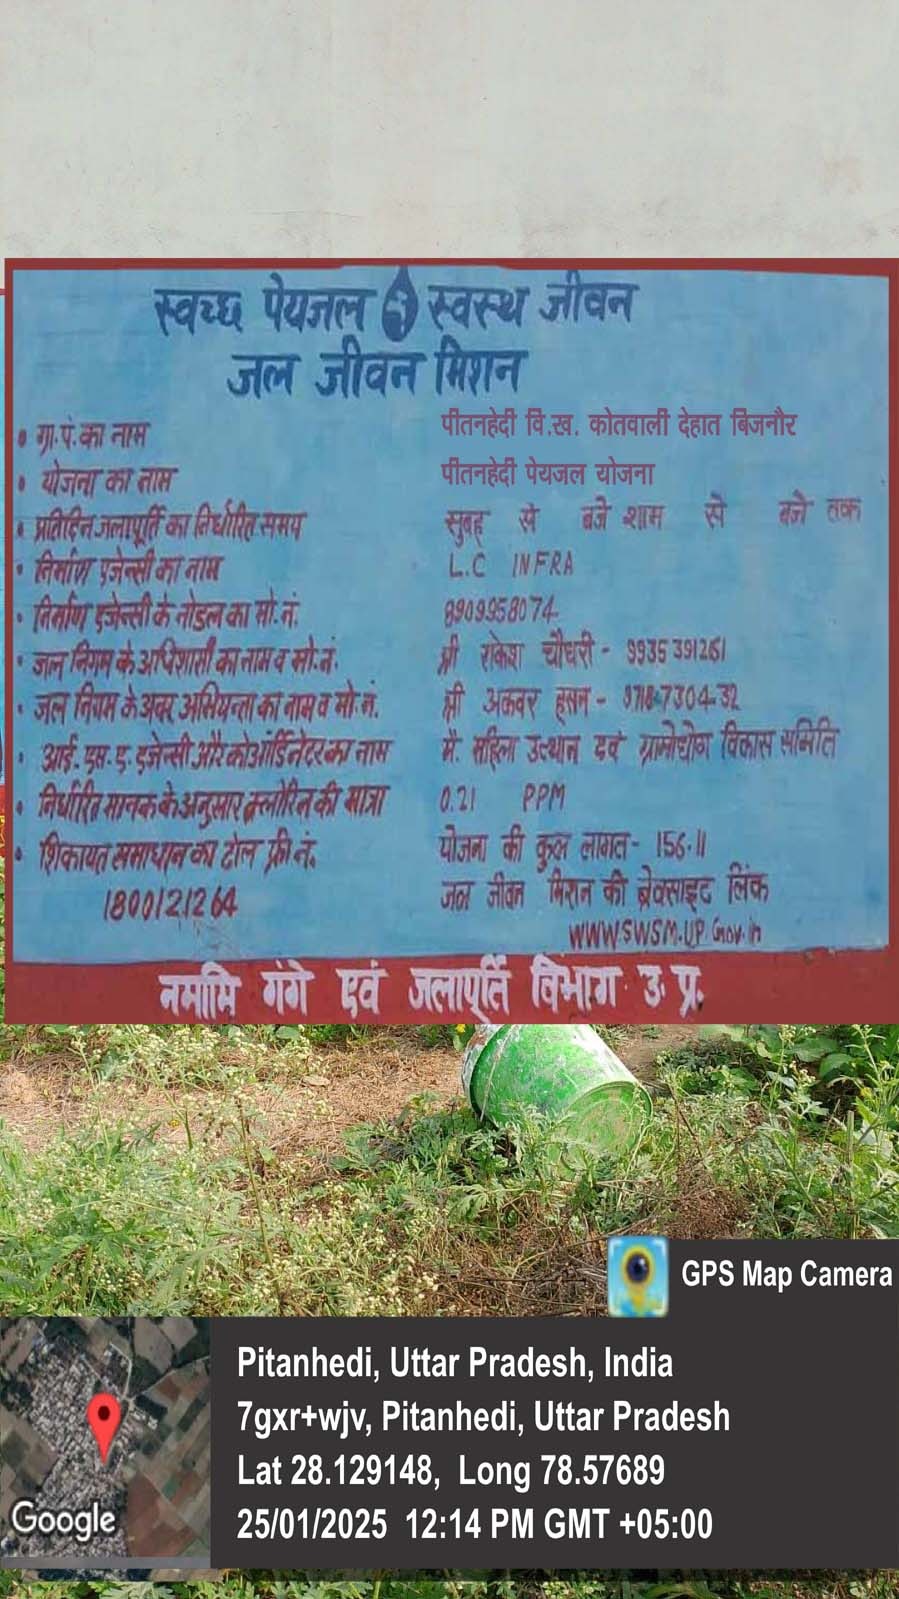 स्वच्छ पेयजल स्वस्थ जीवन
जल जीवन मिशन
• ग्रा.पं.का नाम पीतनहेदी वि.ख. कोतवाली देहात बिजनौर
• योजना का नाम पीतनहेदी पेयजल योजना
• प्रतिदिन जलापूर्ति का निर्धारित समय सुबह से बजे शाम से बजे तक
• निर्माण एजेन्सी का नाम L.C INFRA
• निर्माण एजेन्सी के नोडल का मो.नं. 8909958074
• जल निगम के अधिशासी का नाम व मो.नं. श्री राकेश चौधरी - 9935391261
• जल निगम के अवर अभियन्ता का नाम व मो.नं. श्री अकबर हसन -
• आई.एस.ए.एजेन्सी और कोऑर्डिनेटर का नाम मै. महिला उत्थान एवं ग्रामोद्योग विकास समिति
• निर्धारित मानक के अनुसार क्लोरिन की मात्रा 0.21 PPM
• शिकायत समाधान का टोल फ्री नं. योजना की कुल लागत- 156.11
1800121264 जल जीवन मिशन की वेबसाइट लिंक
WWW.SWSM.UP.Gov.in
नमामि गंगे एवं जलापूर्ति विभाग उ.प्र.
GPS Map Camera
Pitanhedi, Uttar Pradesh, India
7gxr+wjv, Pitanhedi, Uttar Pradesh
Lat 28.129148, Long 78.57689
25/01/2025 12:14 PM GMT +05:00
Google